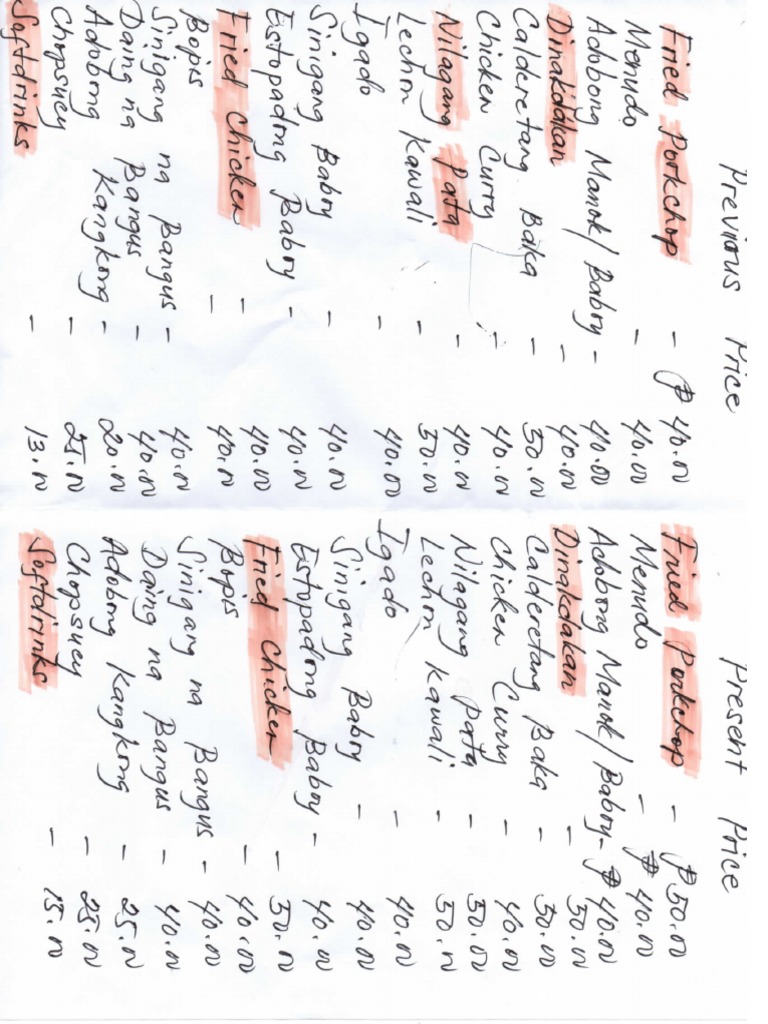 Previous Price
Fried Porkchop - ₱ 40.00
Menudo - 40.00
Adobong Manok/Baboy - 40.00
Dinakdakan - 40.00
Calderetang Baka - 50.00
Chicken Curry - 40.00
Nilagang Pata - 40.00
Lechon Kawali - 50.00
Igado - 40.00
Sinigang Baboy - 40.00
Estopadong Baboy - 40.00
Fried Chicken - 40.00
Bopis - 40.00
Sinigang na Bangus - 40.00
Daing na Bangus - 40.00
Adobong Kangkong - 20.00
Chopsuey - 25.00
Softdrinks - 13.00
Present Price
Fried Porkchop - ₱ 50.00
Menudo - ₱ 40.00
Adobong Manok/Baboy - ₱ 40.00
Dinakdakan - 50.00
Calderetang Baka - 50.00
Chicken Curry - 40.00
Nilagang Pata - 50.00
Lechon Kawali - 50.00
Igado - 40.00
Sinigang Baboy - 40.00
Estopadong Baboy - 40.00
Fried Chicken - 50.00
Bopis - 40.00
Sinigang na Bangus - 40.00
Daing na Bangus - 40.00
Adobong Kangkong - 25.00
Chopsuey - 25.00
Softdrinks - 15.00